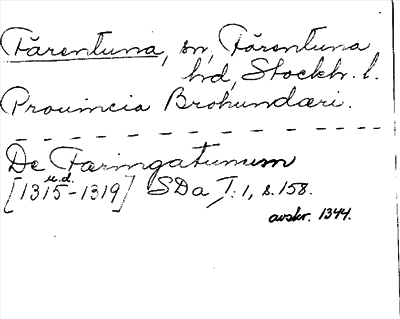 Färentuna, sn, Färentuna
hd, Stockh. l.
Prouincia Brohundæri.
De Færingatumum
u.d.
[1315-1319] SDa I:1, s. 158.
avskr. 1344.